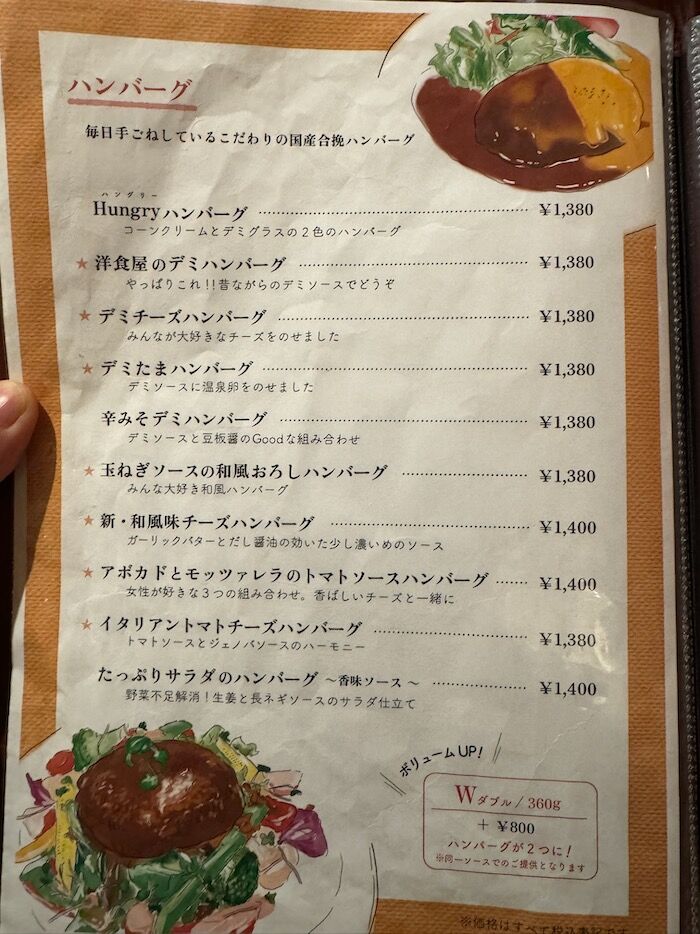 ハンバーグ
毎日手ごねしているこだわりの国産合挽ハンバーグ
ハングリー
Hungryハンバーグ ¥1,380
コーンクリームとデミグラスの2色のハンバーグ
★ 洋食屋のデミハンバーグ ¥1,380
やっぱりこれ!!昔ながらのデミソースでどうぞ
★ デミチーズハンバーグ ¥1,380
みんなが大好きなチーズをのせました
★ デミたまハンバーグ ¥1,380
デミソースに温泉卵をのせました
辛みそデミハンバーグ ¥1,380
デミソースと豆板醤のGoodな組み合わせ
★ 玉ねぎソースの和風おろしハンバーグ ¥1,380
みんな大好き和風ハンバーグ
★ 新・和風味チーズハンバーグ ¥1,400
ガーリックバターとだし醤油の効いた少し濃いめのソース
★ アボカドとモッツァレラのトマトソースハンバーグ ¥1,400
女性が好きな3つの組み合わせ。香ばしいチーズと一緒に
★ イタリアントマトチーズハンバーグ ¥1,380
トマトソースとジェノバソースのハーモニー
たっぷりサラダのハンバーグ ～香味ソース～ ¥1,400
野菜不足解消！生姜と長ネギソースのサラダ仕立て
ボリュームUP!
Wダブル / 360g
+ ¥800
ハンバーグが2つに！
※同一ソースでのご提供となります
※価格はすべて税込表記です